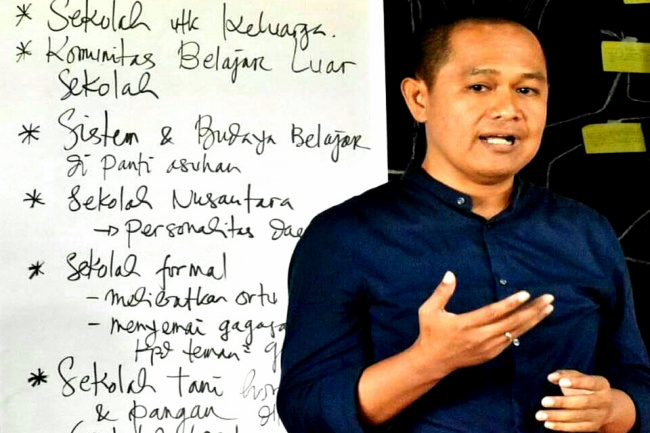 * Sekolah utk keluarga.
* Komunitas Belajar Luar
Sekolah
* Sistem & Budaya Belajar
di Panti asuhan
* Sekolah Nusantara
→ Personalitas dae
* Sekolah formal
- melibatkan ortu
- menyemai gagasa
teman²
* Sekolah tani
& pangan